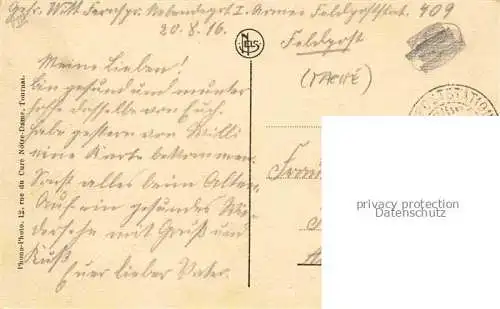 Gefr. Witt Fernspr. Nebendepot I. Armee Feldpoststat. 409
20.8.16.
Feldpost
(MAGUÉ)
NELS
Meine Lieben!
Bin gesund und munter
hoffe dasselbe von Euch.
habe gestern von Willi
eine Karte bekommen.
Sonst alles beim Alten.
Auf ein gesundes Wie-
dersehn mit Gruß und
Kuß
Euer lieber Vater.
Phono-Photo, 12, rue du Curé Nôtre-Dame, Tournai.
Privater
Datenschutz